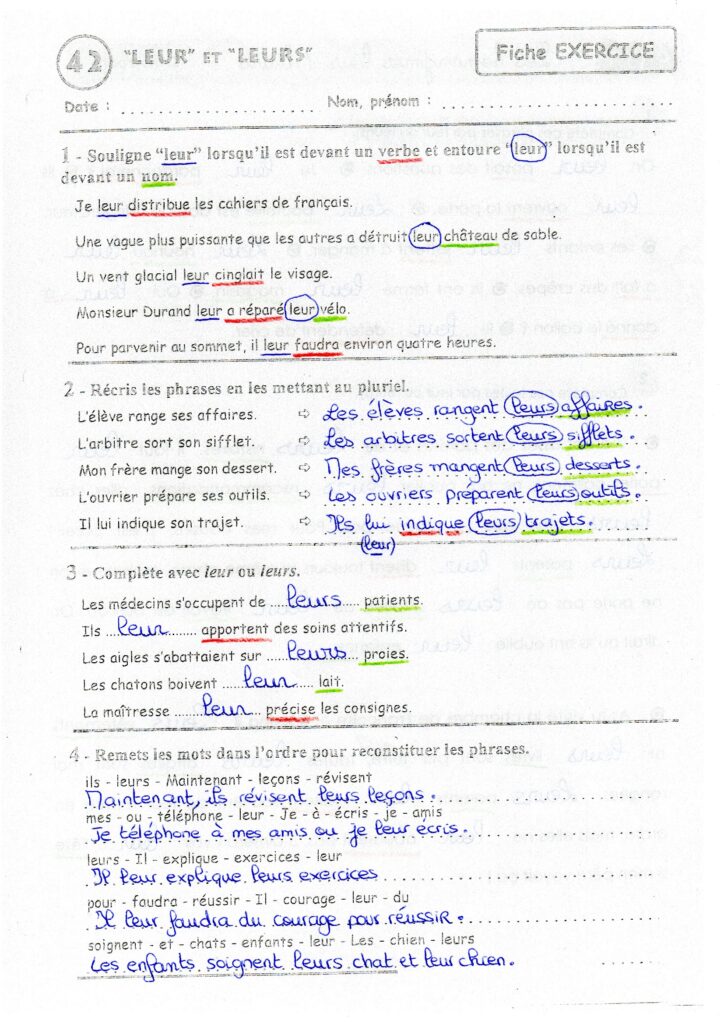 42 "LEUR" ET "LEURS" Fiche EXERCICE
Date : Nom, prénom :
1 - Souligne "leur" lorsqu'il est devant un verbe et entoure "leur" lorsqu'il est
devant un nom.
Je leur distribue les cahiers de français.
Une vague plus puissante que les autres a détruit leur château de sable.
Un vent glacial leur cinglait le visage.
Monsieur Durand leur a réparé leur vélo.
Pour parvenir au sommet, il leur faudra environ quatre heures.
2 - Récris les phrases en les mettant au pluriel.
L'élève range ses affaires. ⇨ Les élèves rangent leurs affaires.
L'arbitre sort son sifflet. ⇨ Les arbitres sortent leurs sifflets.
Mon frère mange son dessert. ⇨ Mes frères mangent leurs desserts.
L'ouvrier prépare ses outils. ⇨ Les ouvriers préparent leurs outils.
Il lui indique son trajet. ⇨ Ils lui indique leurs trajets.
(leur)
3 - Complète avec leur ou leurs.
Les médecins s'occupent de leurs patients.
Ils leur apportent des soins attentifs.
Les aigles s'abattaient sur leurs proies.
Les chatons boivent leur lait.
La maîtresse leur précise les consignes.
4 - Remets les mots dans l'ordre pour reconstituer les phrases.
ils - leurs - Maintenant - leçons - révisent
Maintenant, ils révisent leurs leçons.
mes - ou - téléphone - leur - Je - à - écris - je - amis
Je téléphone à mes amis ou je leur écris.
leurs - Il - explique - exercices - leur
Il leur explique leurs exercices
pour - faudra - réussir - Il - courage - leur - du
Il leur faudra du courage pour réussir.
soignent - et - chats - enfants - leur - Les - chien - leurs
Les enfants soignent leurs chat et leur chien.